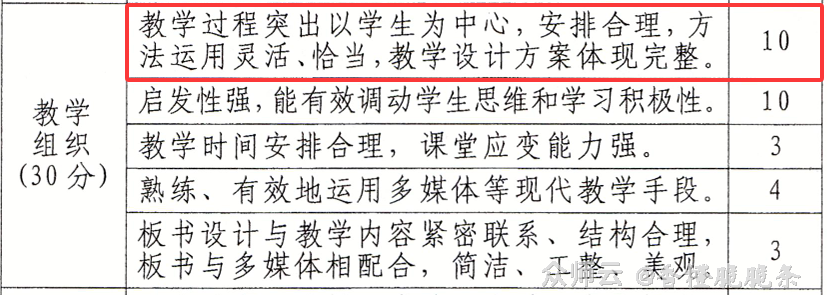 教学过程突出以学生为中心，安排合理，方
法运用灵活、恰当，教学设计方案体现完整。
10
启发性强，能有效调动学生思维和学习积极性。
10
教学
组织
(30分)
教学时间安排合理，课堂应变能力强。
3
熟练、有效地运用多媒体等现代教学手段。
4
板书设计与教学内容紧密联系、结构合理，
板书与多媒体相配合，简洁、工整、美观。
3
众师云 @香橙脆脆条